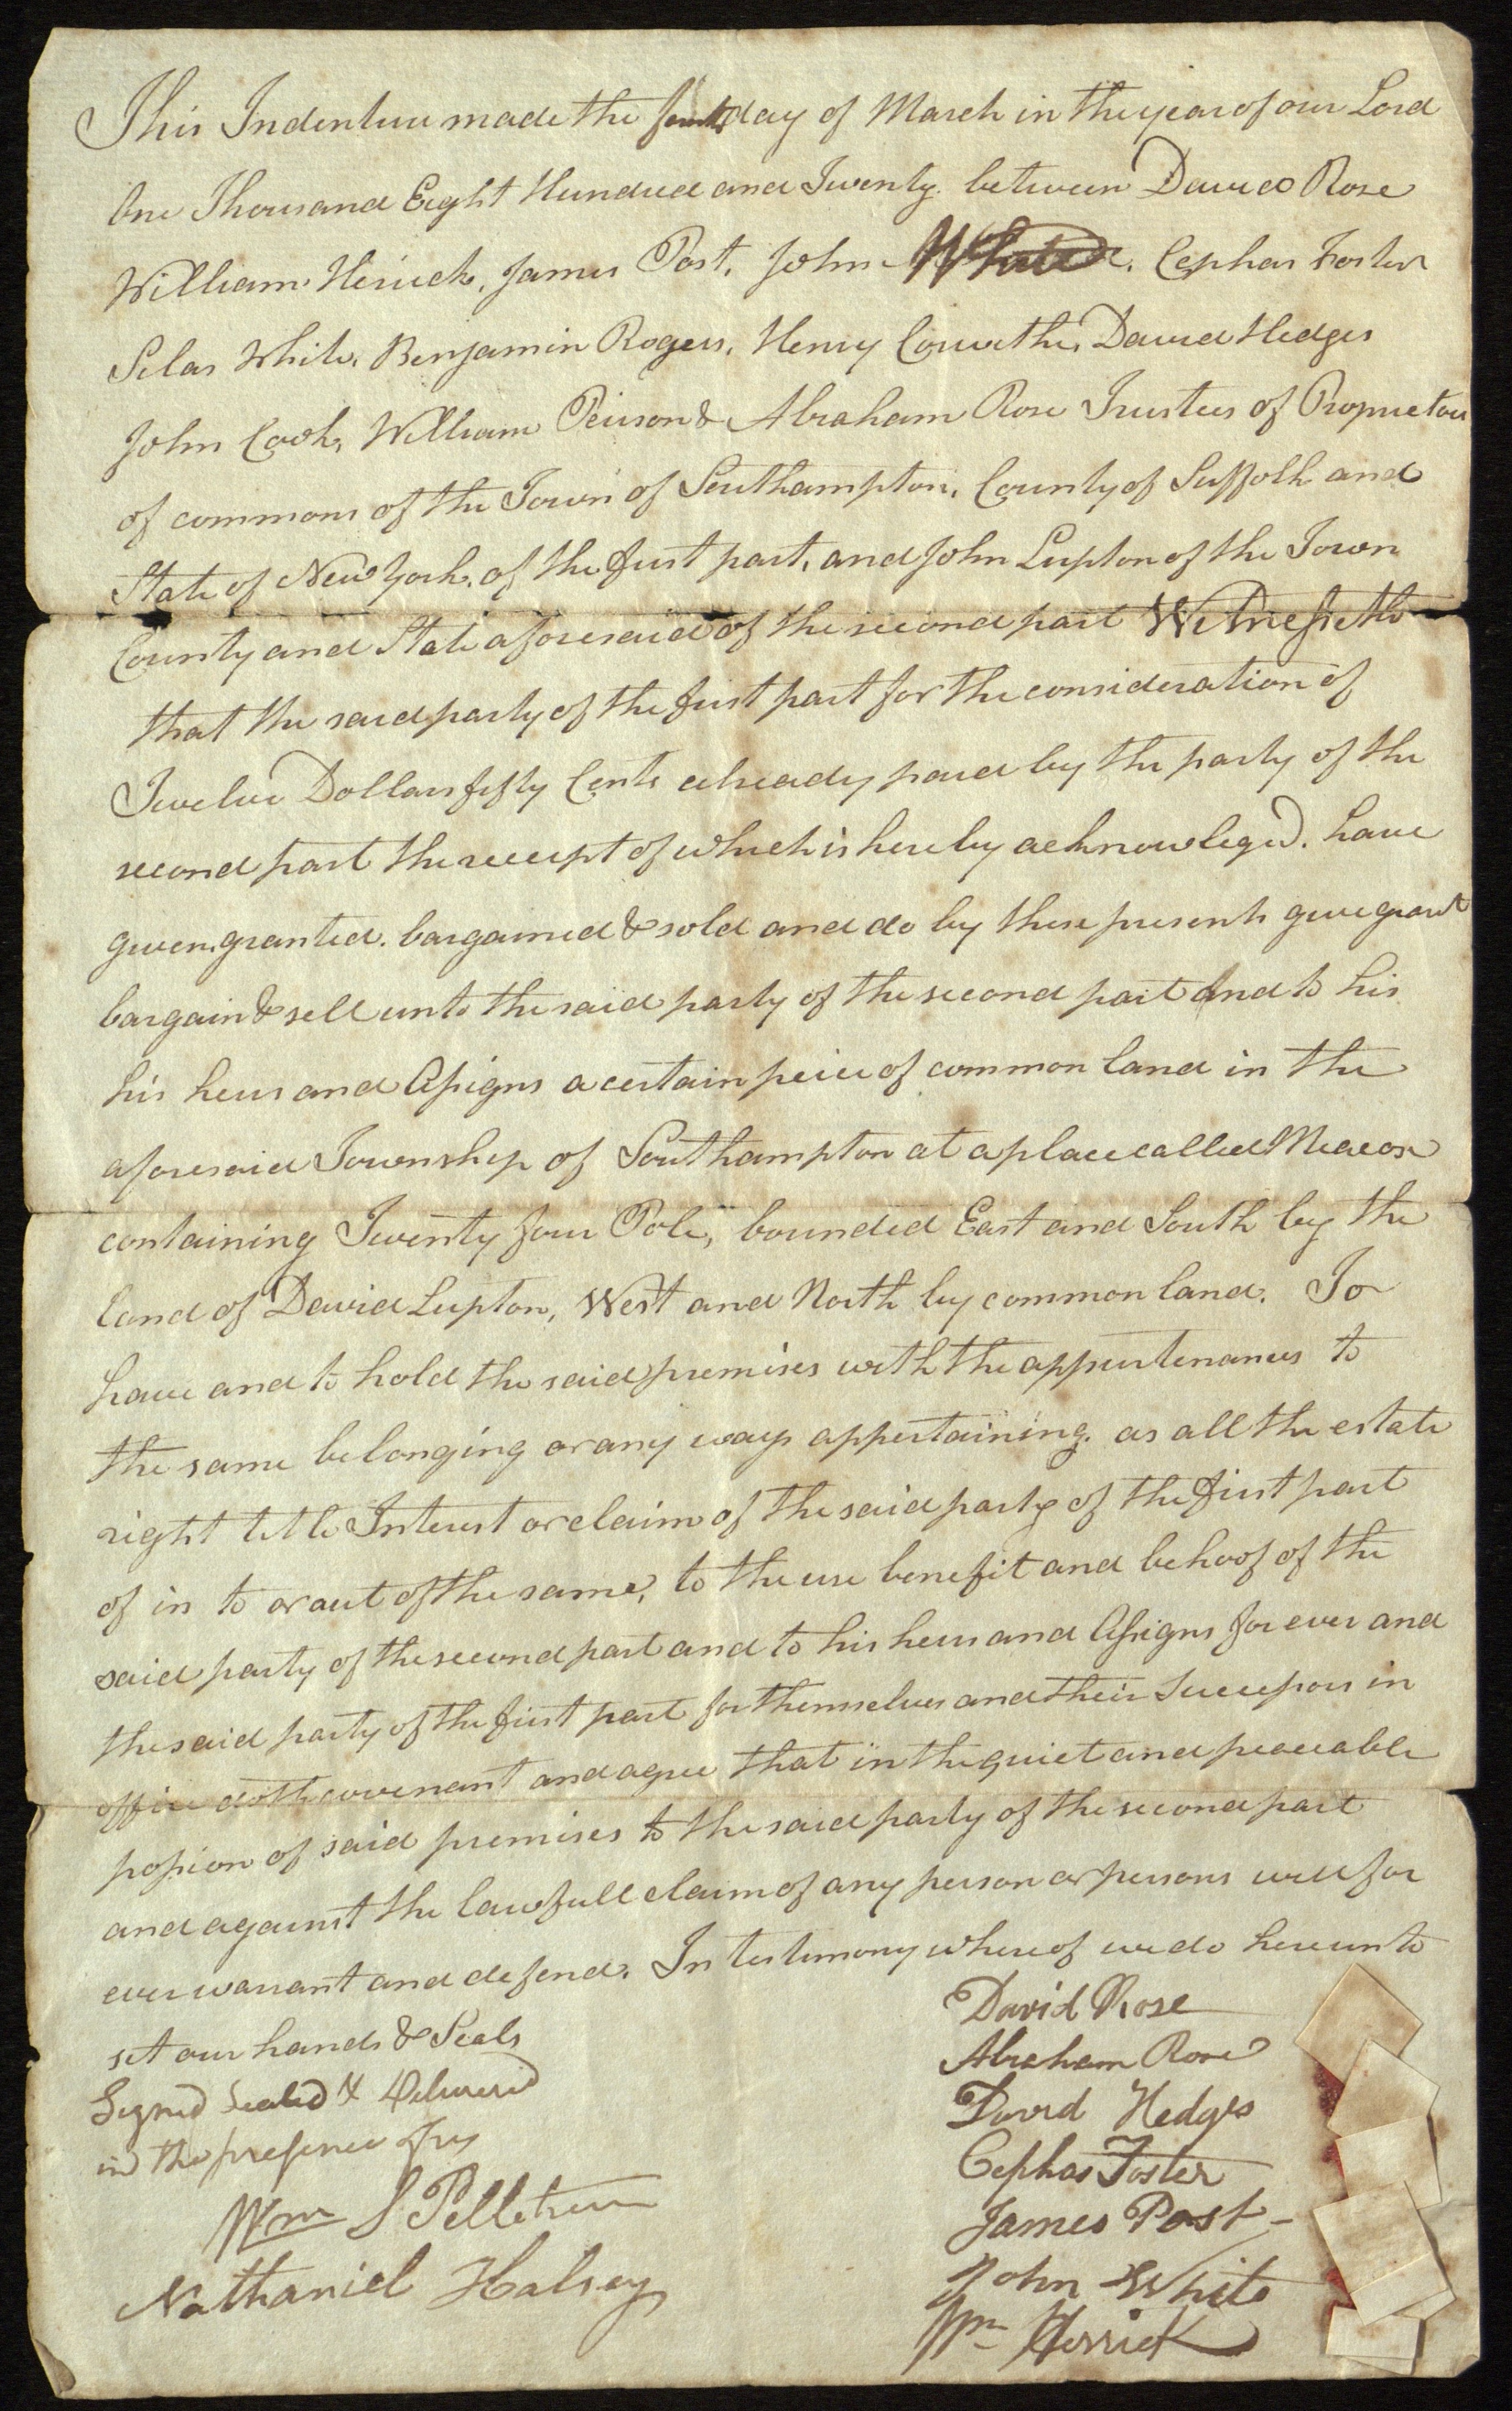 This Indenture made the day of March in the year of our Lord
One Thousand Eight Hundred and Twenty. between David Rose
William Herick, James Post, John White. Cephas Foster
Silas White, Benjamin Rogers, Henry Corwithe, David Hedges
John Cook, William Peirson & Abraham Rose Trustees of Proprietors
of commons of the Town of Southampton, County of Suffolk and
State of New York, of the first part, and John Lupton of the Town
County and State aforesaid of the second part Witnesseth
that the said party of the first part for the consideration of
Twelve Dollars fifty Cents already paid by the party of the
second part the receipt of which is hereby acknowleged. have
given, granted. bargained & sold and do by these presents give grant
bargain & sell unto the said party of the second part And to his
his heirs and Assigns a certain peice of common land in the
aforesaid Township of Southampton at a place called Mecox
containing Twenty four Pole, bounded East and South by the
land of David Lupton, West and North by common land. To
have and to hold the said premises with the appurtenances to
the same belonging or any ways appertaining. as all the estate
right title Interest or claim of the said party of the first part
of in to or out of the same, to the use benefit and behoof of the
said party of the second part and to his heirs and Assigns for ever and
the said party of the first part for themselves and their Successors in
office doth covenant and agree that in the quiet and peaceable
possion of said premises to the said party of the second part
and against the lawfull claim of any person or persons will for
ever warrant and defend. In testimony whereof we do hereunto
set our hands & Seals
Signed Sealed & Delivered
in the presence of us
Wm S Pelletreau
Nathaniel Halsey
David Rose
Abraham Rose
David Hedges
Cephas Foster
James Post
John White
Wm Herrick